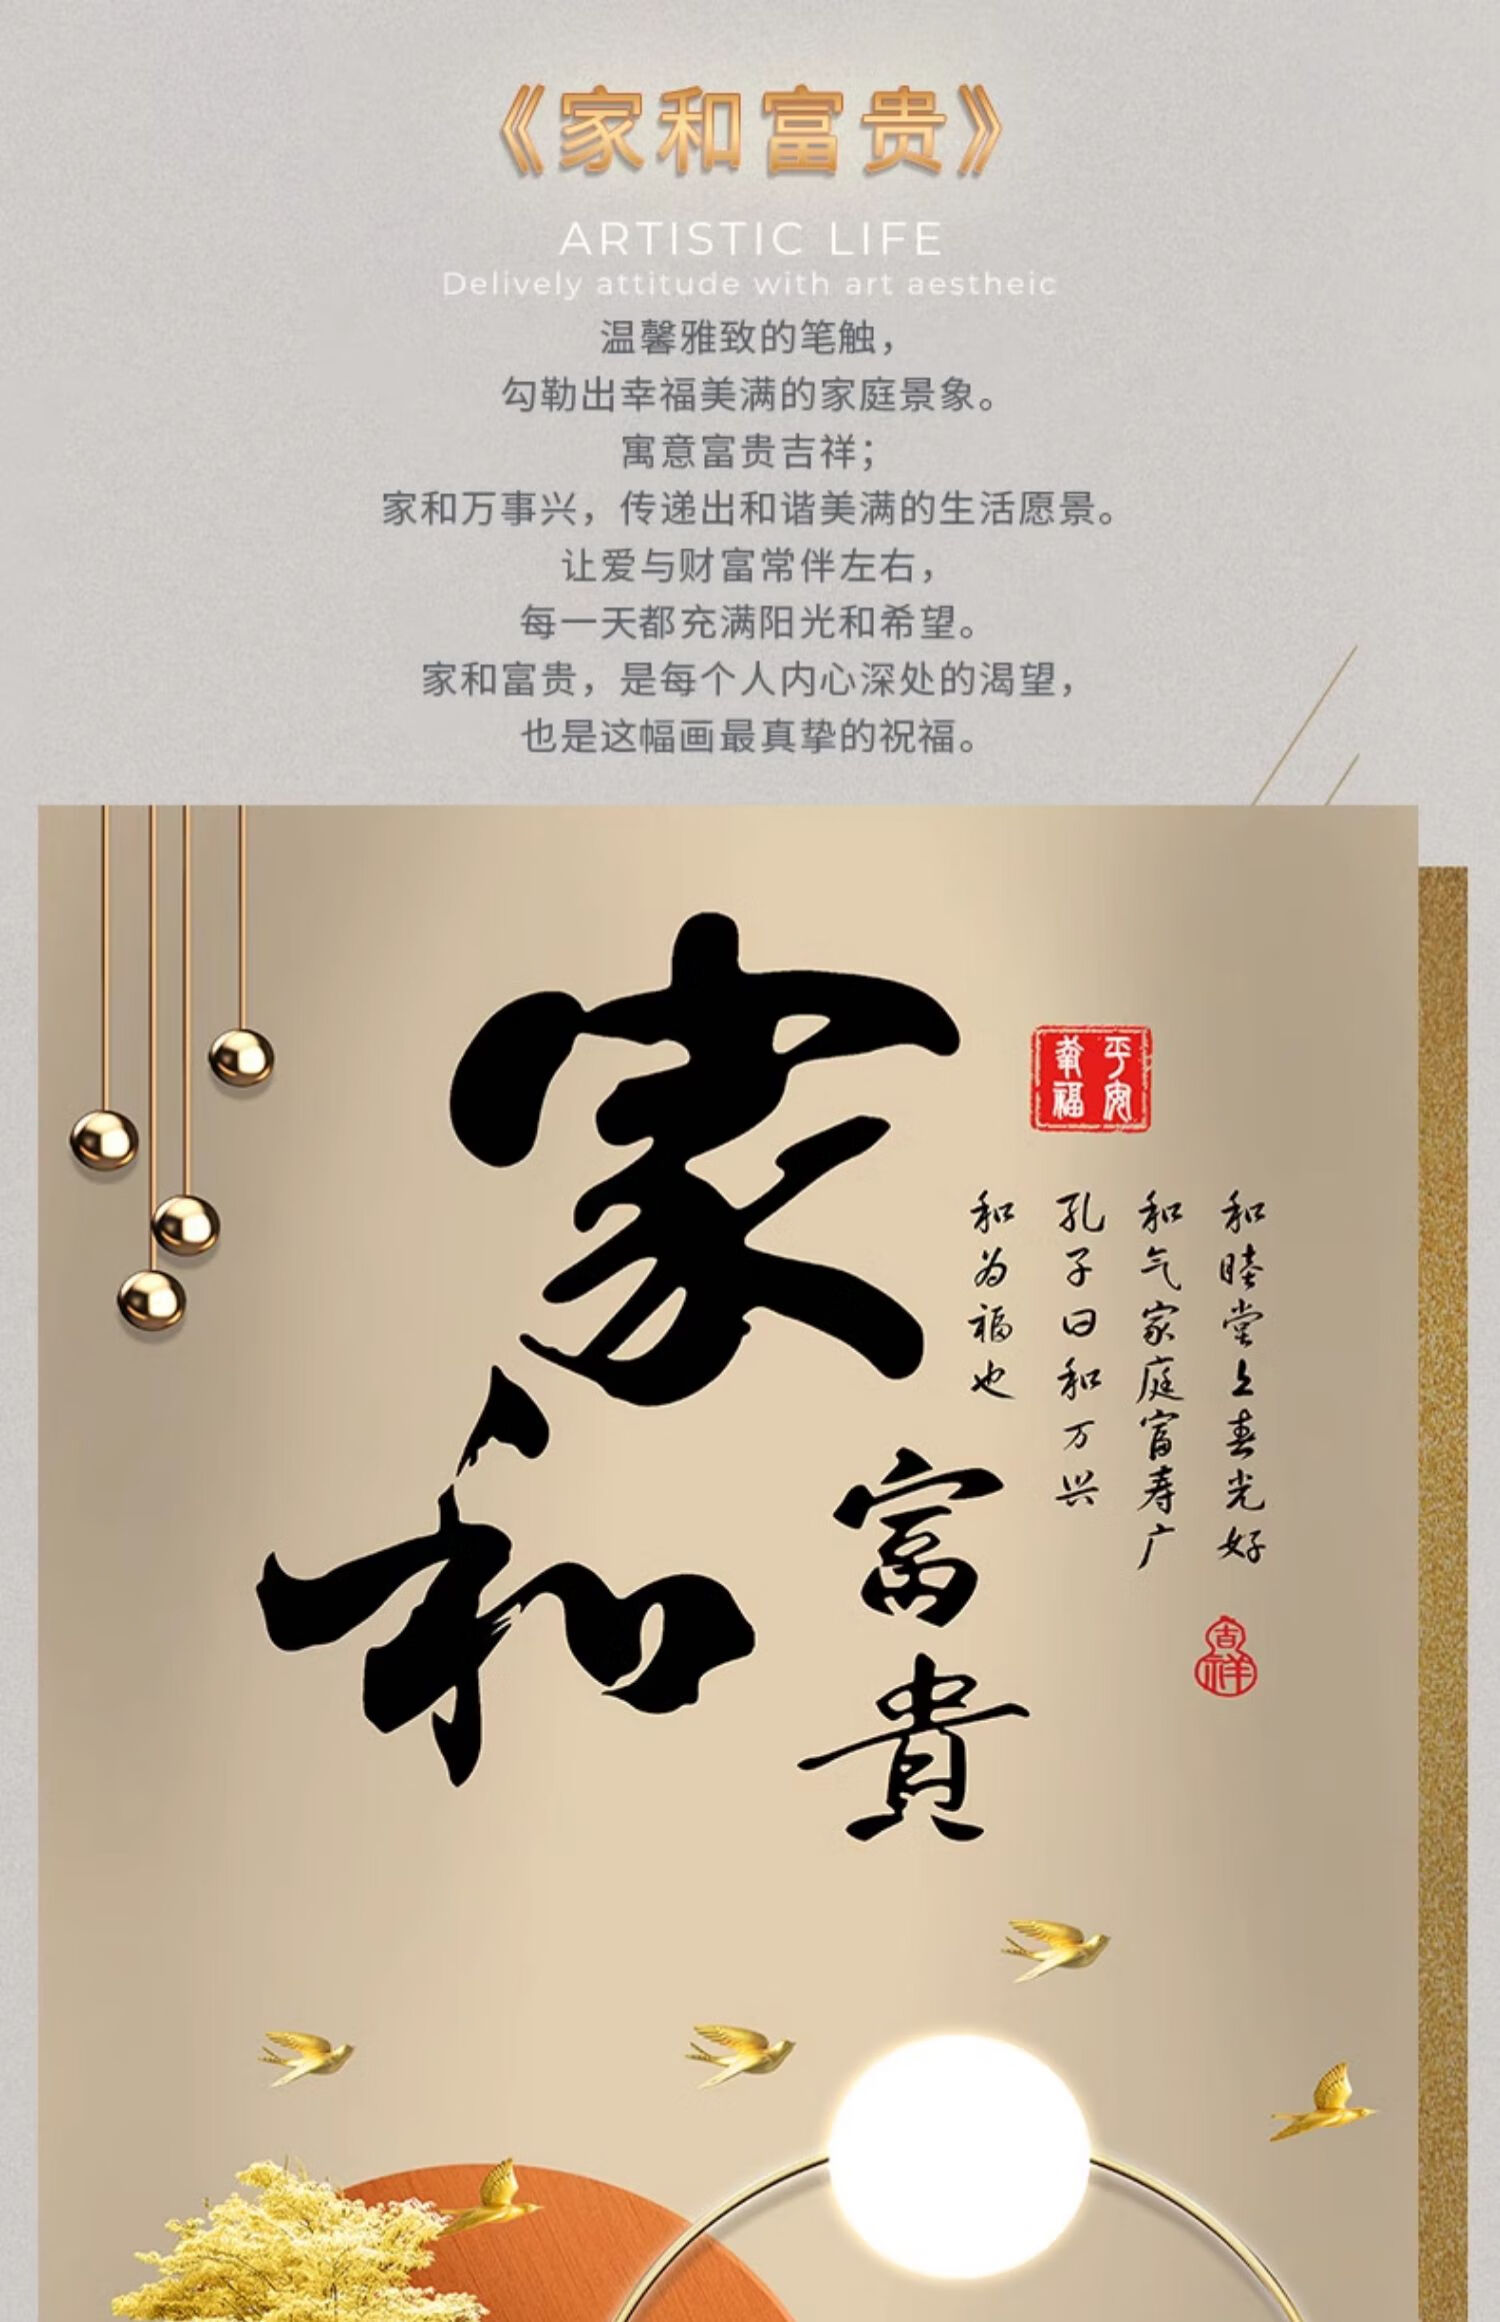 《家和富贵》
ARTISTIC LIFE
Delively attitude with art aestheic
温馨雅致的笔触，
勾勒出幸福美满的家庭景象。
寓意富贵吉祥；
家和万事兴，传递出和谐美满的生活愿景。
让爱与财富常伴左右，
每一天都充满阳光和希望。
家和富贵，是每个人内心深处的渴望，
也是这幅画最真挚的祝福。
家和
富貴
平安
幸福
和睦堂上春光好
和气家庭富寿广
孔子曰和万兴
和为福也
吉祥